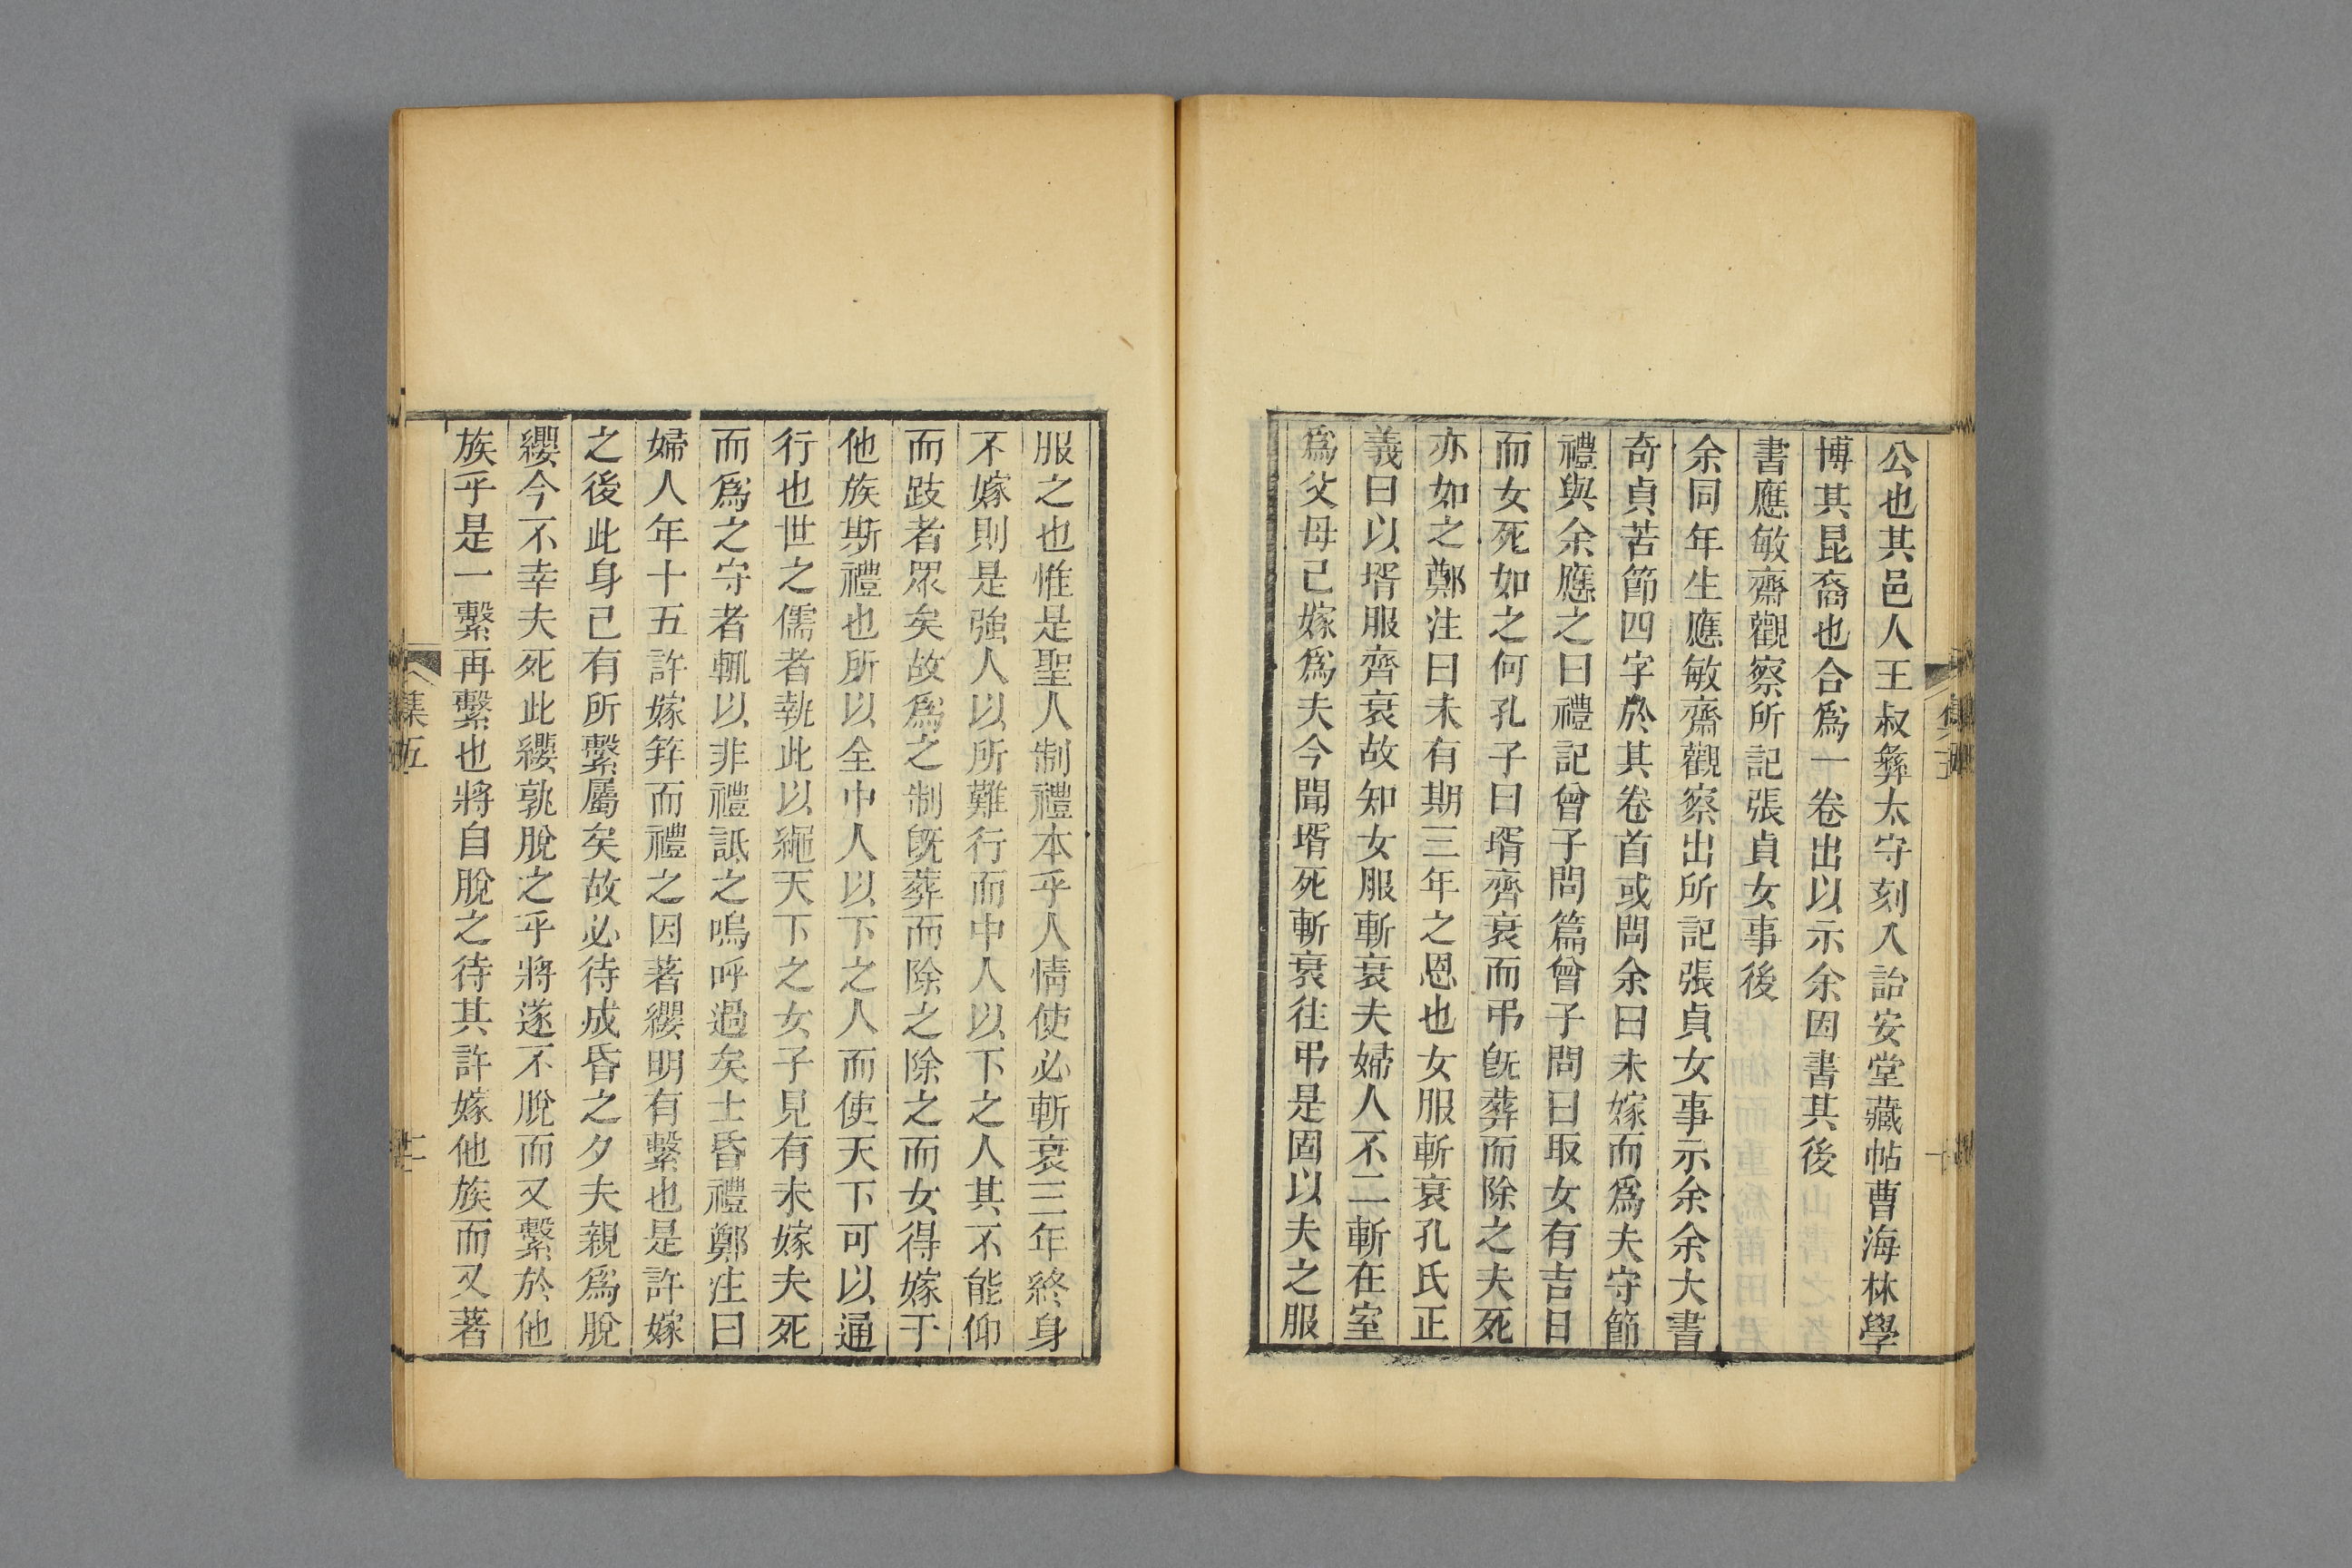 公也其邑人王叔彝太守刻入詒安堂藏帖曹海林學
博其昆裔也合爲一卷出以示余因書其後
書應敏齋觀察所記張貞女事後
余同年生應敏齋觀察出所記張貞女事示余余大書
奇貞苦節四字於其卷首或問余曰未嫁而爲夫守節
禮與余應之曰禮記曾子問篇曾子問曰取女有吉日
而女死如之何孔子曰壻齊衰而弔旣葬而除之夫死
亦如之鄭注曰未有期三年之恩也女服斬衰孔氏正
義曰以壻服齊衰故知女服斬衰夫婦人不二斬在室
爲父母已嫁爲夫今聞壻死斬衰往弔是固以夫之服
服之也惟是聖人制禮本乎人情使必斬衰三年終身
不嫁則是強人以所難行而中人以下之人其不能仰
而跂者眾矣故爲之制旣葬而除之除之而女得嫁于
他族斯禮也所以全中人以下之人而使天下可以通
行也世之儒者執此以繩天下之女子見有未嫁夫死
而爲之守者輒以非禮詆之嗚呼過矣士昏禮鄭注曰
婦人年十五許嫁笄而禮之因著纓明有繫也是許嫁
之後此身已有所繫屬矣故必待成昏之夕夫親爲脫
纓今不幸夫死此纓孰脫之乎將遂不脫而又繫於他
族乎是一繫再繫也將自脫之待其許嫁他族而又著
集五